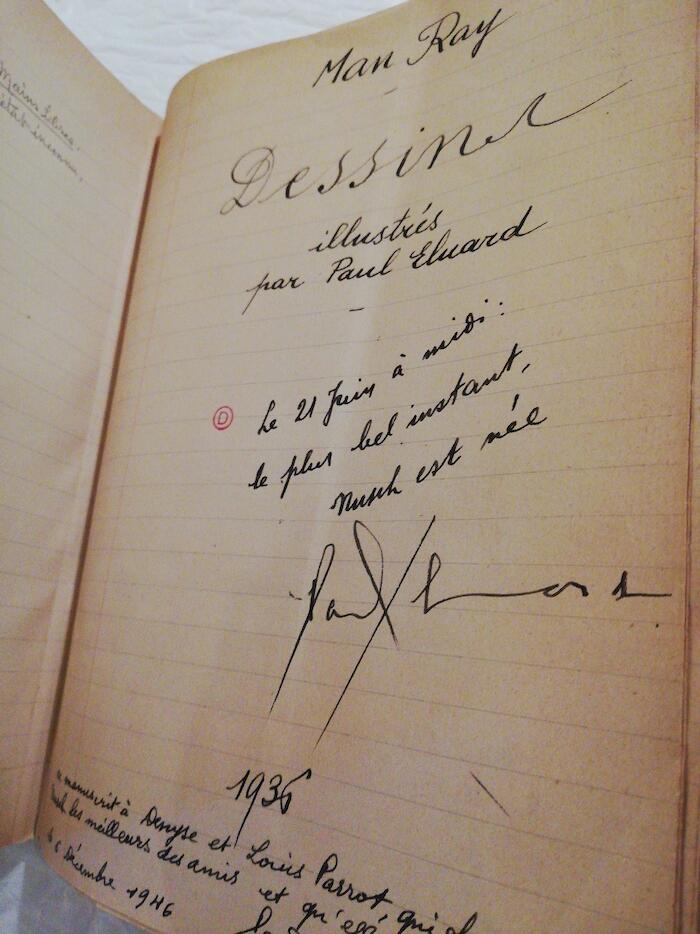 Mains libres.
Man Ray
Dessins
illustrés
par Paul Eluard
D
Le 21 Juin à midi :
le plus bel instant,
Nusch est née
Paul Eluard
1936
manuscrit à Denyse et Louis Parrot qui
les meilleurs des amis et qu'elle
6 Décembre 1946